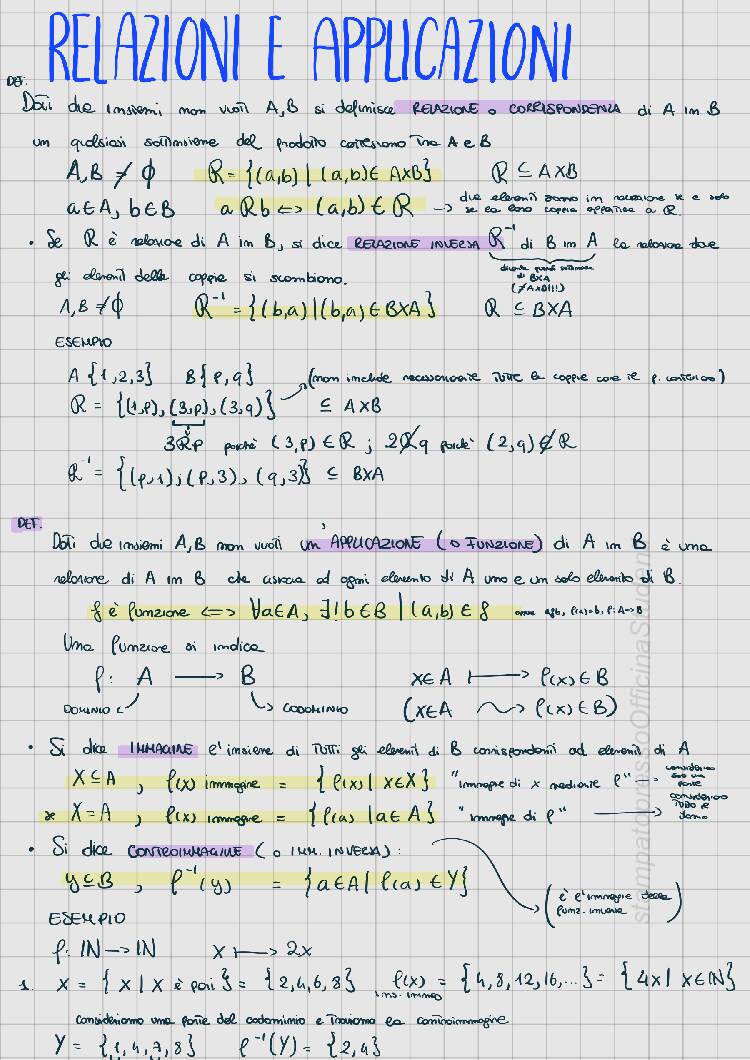 RELAZIONI E APPLICAZIONI
DEF.
Dati due insiemi non vuoti A,B si definisce RELAZIONE o CORRISPONDENZA di A in B
un qualsiasi sottoinsieme del prodotto cartesiano tra A e B
A,B ≠ ∅ R = {(a,b) | (a,b) ∈ AXB} R ⊆ AXB
a∈A, b∈B a R b <=> (a,b) ∈ R → due elementi sono in relazione se e solo
se la loro coppia appartiene a R.
• Se R è relazione di A in B, si dice RELAZIONE INVERSA R⁻¹ di B in A la relazione dove
gli elementi della coppia si scambiono.
di BXA
(≠AXB!!!)
A,B ≠∅ R⁻¹ = {(b,a) | (b,a) ∈ BXA} R ⊆ BXA
ESEMPIO
A {1,2,3} B{p,q} (non include necessariamente tutte le coppie come il p. cartesiano)
R = {(1,p), (3,p), (3,q)} ⊆ AXB
3Rp perché (3,p) ∈ R ; 2R̸q perché (2,q) ∉ R
R⁻¹ = {(p,1); (p,3), (q,3)} ⊆ BXA
DEF.
Dati due insiemi A,B non vuoti un'APPLICAZIONE (o FUNZIONE) di A in B è una
relazione di A in B che associa ad ogni elemento di A uno e un solo elemento di B.
f è funzione <=> ∀a∈A, ∃! b∈B | (a,b) ∈ f afb, f(a)=b, f:A→B
Una funzione si indica
f: A → B x∈A ↦ f(x)∈B
DOMINIO CODOMINIO (x∈A ⇝ f(x)∈B)
• Si dice IMMAGINE l'insieme di TUTTI gli elementi di B corrispondenti ad elementi di A
X⊆A , f(x) immagine = {f(x) | x∈X} "immagine di x mediante f" → consideriamo
solo una
parte
se X=A , f(x) immagine = {f(a) | a∈A} "immagine di f" → consideriamo
tutto il
dominio
• Si dice CONTROIMMAGINE (o IMM. INVERSA):
y⊆B , f⁻¹(y) = {a∈A | f(a) ∈ Y}
(è l'immagine della
funz. inversa)
ESEMPIO
f: IN → IN x ↦ 2x
1. X = {x | x è pari} = {2,4,6,8} f(x) = {4,8,12,16,...} = {4x | x∈IN}
ins. immag
consideriamo una parte del codominio e troviamo la controimmagine
Y = {1,4,7,8} f⁻¹(Y) = {2,4}
stampatopressoOfficinaStudenti